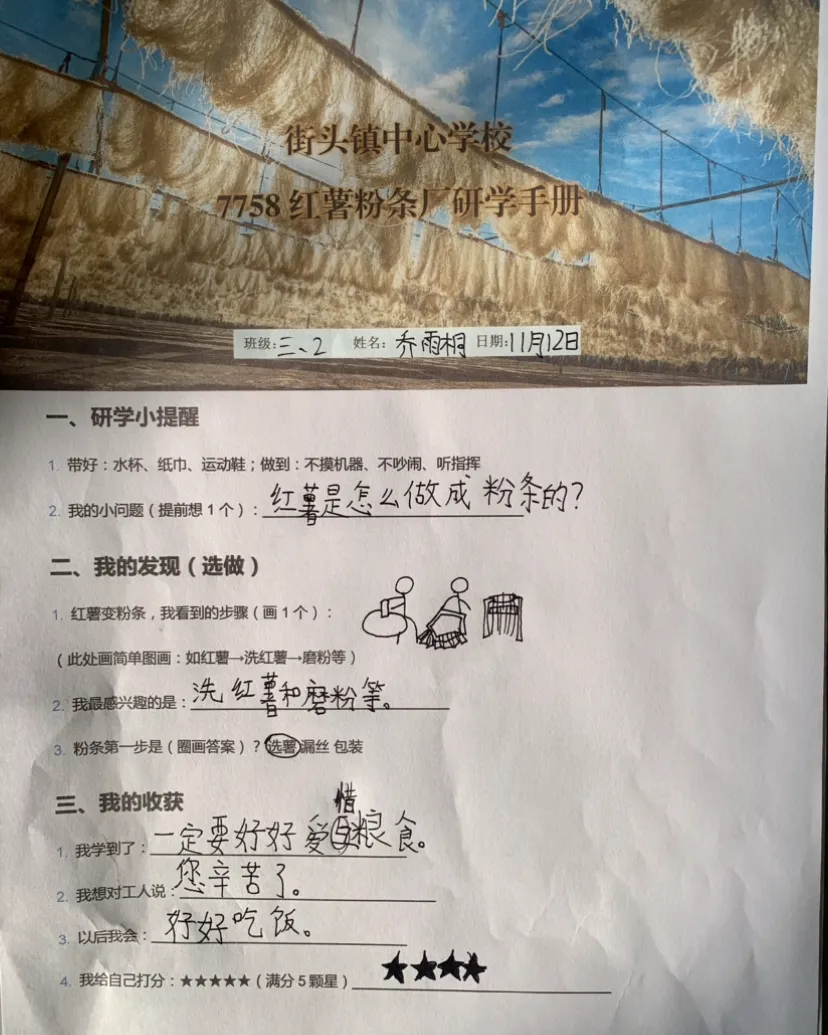 街头镇中心学校
7758 红薯粉条厂研学手册
班级:三、2 姓名:乔雨桐 日期:11月12日
一、研学小提醒
1. 带好：水杯、纸巾、运动鞋；做到：不摸机器、不吵闹、听指挥
2. 我的小问题（提前想 1 个）：红薯是怎么做成粉条的?
二、我的发现（选做）
1. 红薯变粉条，我看到的步骤（画 1 个）：
（此处画简单图画：如红薯→洗红薯→磨粉等）
2. 我最感兴趣的是：洗红薯和磨粉等。
3. 粉条第一步是（圈画答案）？选薯 漏丝 包装
三、我的收获
1. 我学到了：一定要好好爱惜粮食。
2. 我想对工人说：您辛苦了。
3. 以后我会：好好吃饭。
4. 我给自己打分：★★★★★（满分 5 颗星）★★★★